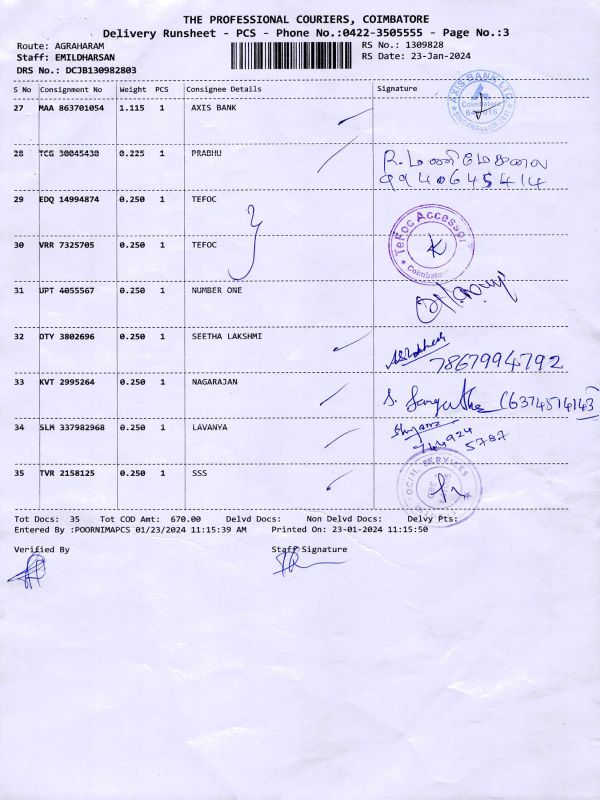 THE PROFESSIONAL COURIERS, COIMBATORE
Delivery Runsheet - PCS - Phone No.:0422-3505555 - Page No.:3
Route: AGRAHARAM RS No.: 1309828
Staff: EMILDHARSAN RS Date: 23-Jan-2024
DRS No.: DCJB130982803
S No Consignment No Weight PCS Consignee Details Signature
27 MAA 863701054 1.115 1 AXIS BANK
AXIS BANK LTD
Coimbatore
28 TCG 30045430 0.225 1 PRABHU
9940645414
29 EDQ 14994874 0.250 1 TEFOC
30 VRR 7325705 0.250 1 TEFOC
TeFoc Accessor
Coimbatore
31 UPT 4055567 0.250 1 NUMBER ONE
32 DTY 3802696 0.250 1 SEETHA LAKSHMI
7867994792
33 KVT 2995264 0.250 1 NAGARAJAN
S. Sangeetha (6374514143)
34 SLM 337982968 0.250 1 LAVANYA
744924
5787
35 TVR 2158125 0.250 1 SSS
SERVICES
Tot Docs: 35 Tot COD Amt: 670.00 Delvd Docs: Non Delvd Docs: Delvy Pts:
Entered By :POORNIMAPCS 01/23/2024 11:15:39 AM Printed On: 23-01-2024 11:15:50
Verified By Staff Signature